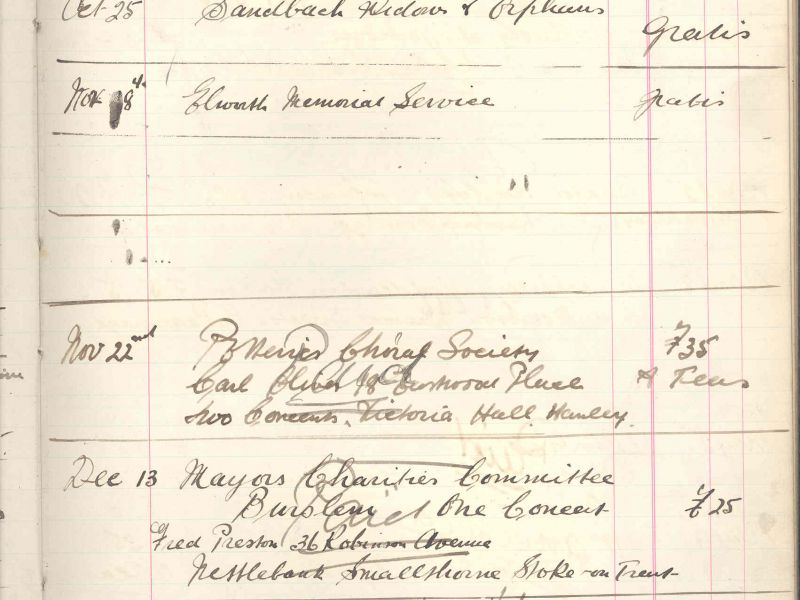 Oct 25 Sandbach Widows & Orphans Gratis
Nov 8 Elworth Memorial Service gratis
"
Nov 22nd Potteries Choral Society £35
Carl Oliver 18 Eastwood Place & Teas
two Concerts. Victoria Hall Hanley.
Dec 13 Mayors Charities Committee
Burslem One Concert £25
Fred Preston 36 Robinson Avenue
Nettlebank Smallthorne Stoke-on Trent
Paid